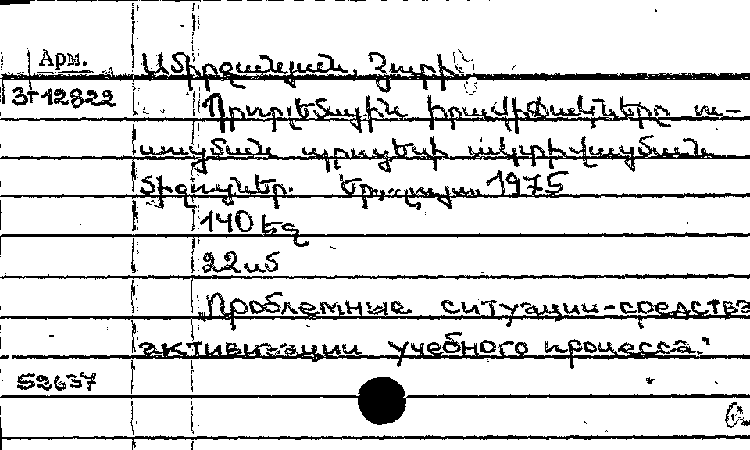 Арм.
Ամիրջանյան, Յուրի
3г12822
Պրոբլեմային իրավիճակները ու-
սուցման պրոցեսի ակտիվացման
միջոցներ. Երևան, 1975
140 եզ
22 սմ
"Проблемные ситуации-средства
активизации учебного процесса."
52637